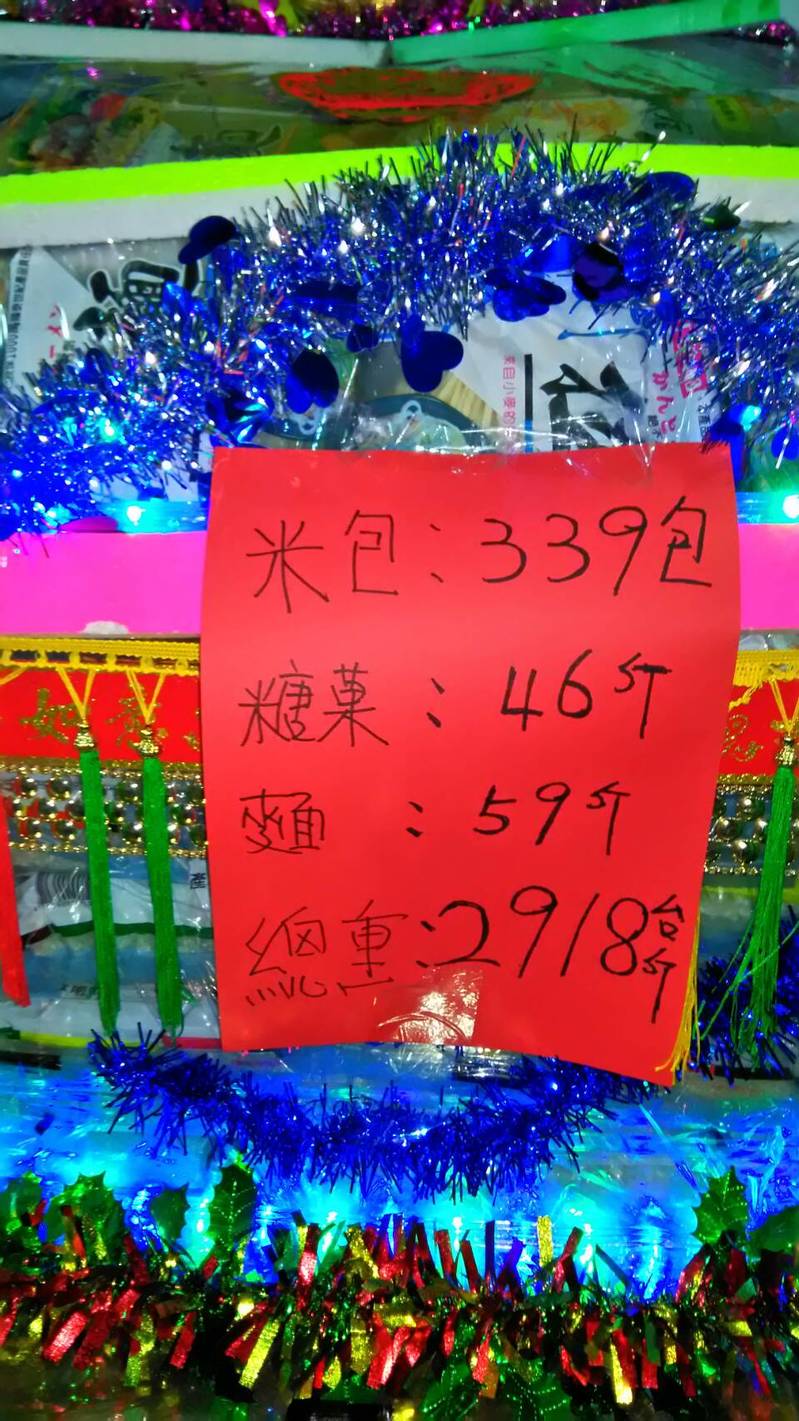 米包：339包
糖菓：46斤
麵：59斤
總重：2918台斤
如意